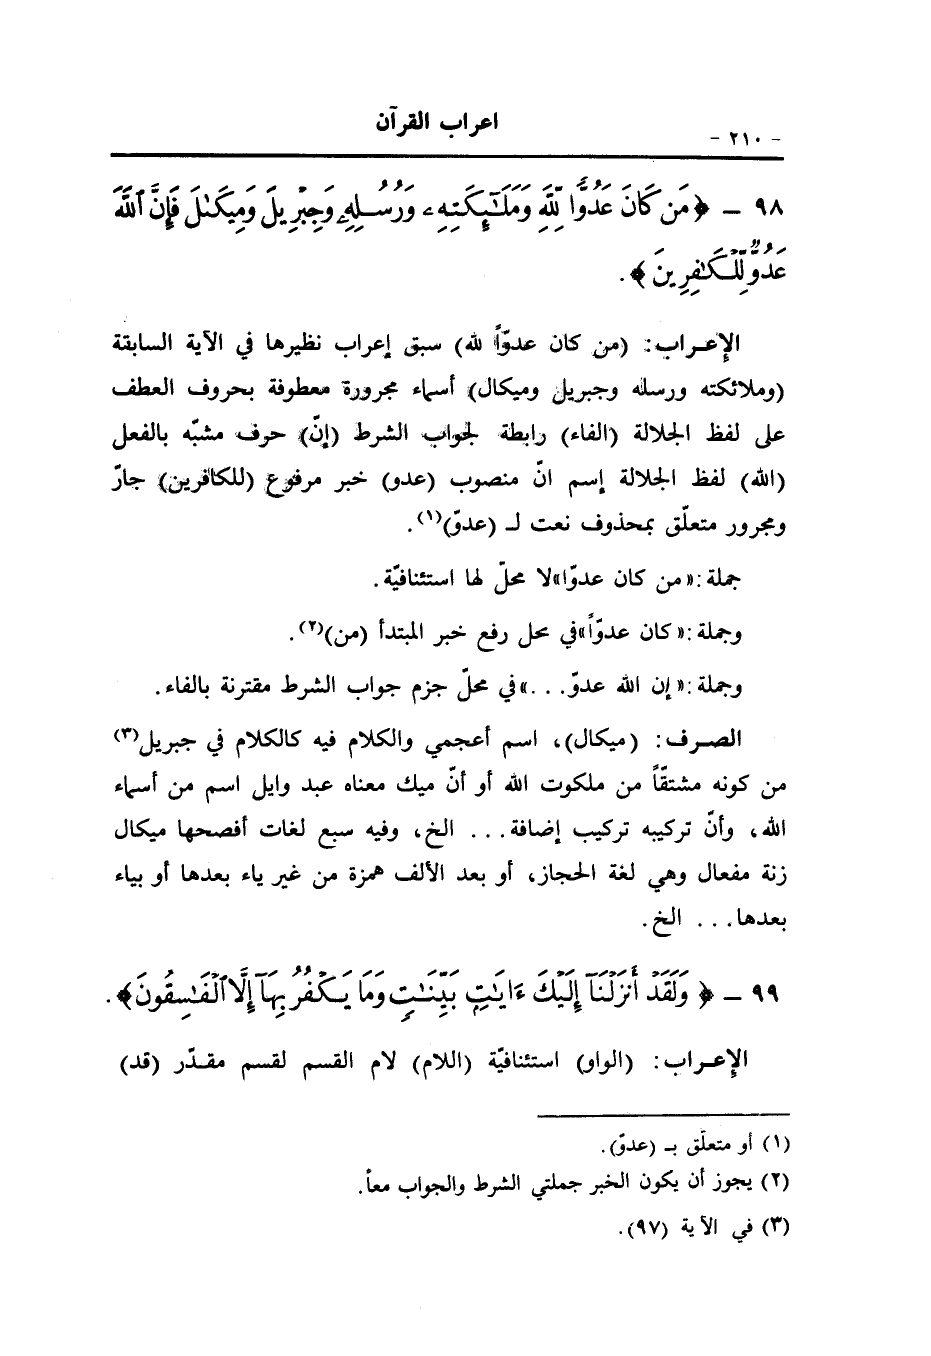 - ٢١٠ -
اعراب القرآن
٩٨ ـ ﴿ مَن كَانَ عَدُوًّا لِّلَّهِ وَمَلَـٰٓئِكَتِهِۦ وَرُسُلِهِۦ وَجِبْرِيلَ وَمِيكَـٰلَ فَإِنَّ ٱللَّهَ
عَدُوٌّ لِّلْكَـٰفِرِينَ ﴾ .
الإعـراب : (من كان عدوّاً لله) سبق إعراب نظيرها في الآية السابقة
(وملائكته ورسله وجبريل وميكال) أسماء مجرورة معطوفة بحروف العطف
على لفظ الجلالة (الفاء) رابطة لجواب الشرط (إنّ) حرف مشبّه بالفعل
(الله) لفظ الجلالة إسم انّ منصوب (عدو) خبر مرفوع (للكافرين) جارّ
ومجرور متعلّق بمحذوف نعت لـ (عدوّ)(١) .
جملة : «من كان عدوّا» لا محلّ لها استئنافيّة .
وجملة : «كان عدوّاً» في محل رفع خبر المبتدأ (من)(٢) .
وجملة : «إن الله عدوّ . . .» في محلّ جزم جواب الشرط مقترنة بالفاء .
الصـرف : (ميكال)، اسم أعجمي والكلام فيه كالكلام في جبريل(٣)
من كونه مشتقّاً من ملكوت الله أو أنّ ميك معناه عبد وايل اسم من أسماء
الله، وأنّ تركيبه تركيب إضافة . . . الخ، وفيه سبع لغات أفصحها ميكال
زنة مفعال وهي لغة الحجاز، أو بعد الألف همزة من غير ياء بعدها أو بياء
بعدها . . . الخ .
٩٩ ـ ﴿ وَلَقَدْ أَنزَلْنَآ إِلَيْكَ ءَايَـٰتٍۭ بَيِّنَـٰتٍ وَمَا يَكْفُرُ بِهَآ إِلَّا ٱلْفَـٰسِقُونَ ﴾ .
الإعـراب : (الواو) استئنافيّة (اللام) لام القسم لقسم مقـدّر (قد)
(١) أو متعلّق بـ (عدوّ) .
(٢) يجوز أن يكون الخبر جملتي الشرط والجواب معاً .
(٣) في الآية (٩٧) .